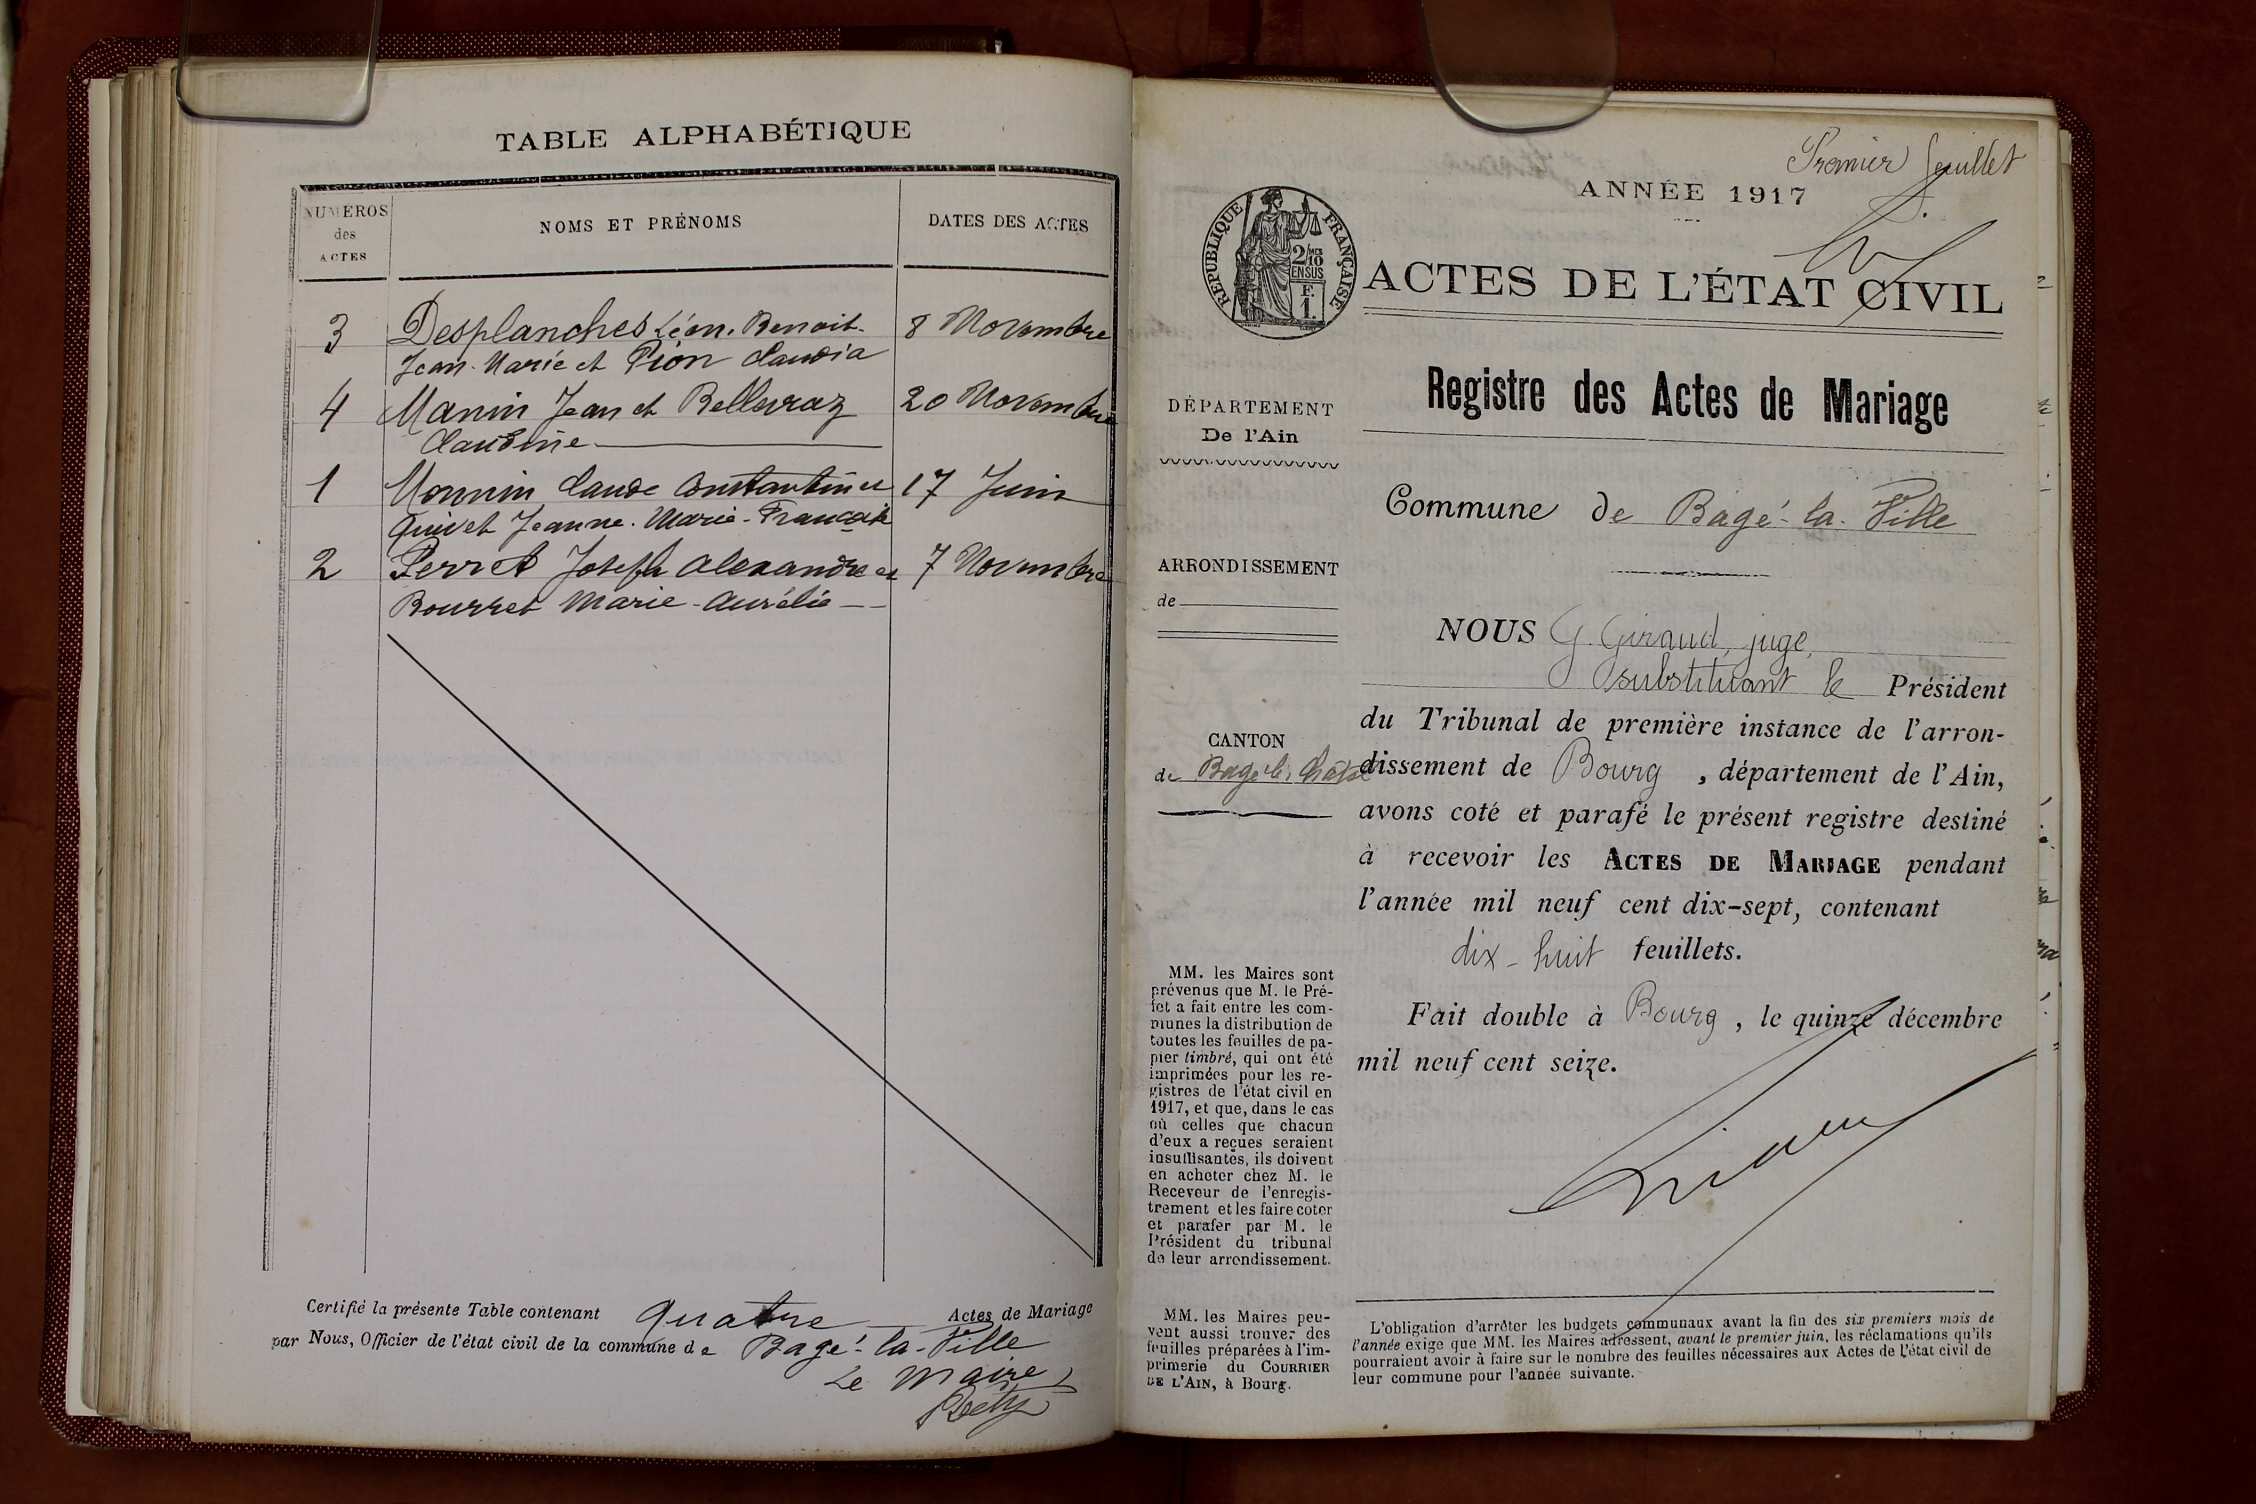 TABLE ALPHABÉTIQUE
NUMÉROS
des
ACTES
NOMS ET PRÉNOMS
DATES DES ACTES
3 Desplanches Léon. Benoit. 8 Novembre
Jean. Marie et Pion Claudia
4 Manin Jean et Bellevraz 20 Novembre
Claudine
1 Monnin Claude Constantin et 17 Juin
Quivet Jeanne. Marie - Françoise
2 Perret Joseph Alexandre et 7 Novembre
Bourret Marie - Aurélie
Certifié la présente Table contenant quatre Actes de Mariage
par Nous, Officier de l'état civil de la commune de Bagé-la-Ville
Le Maire
Premier feuillet
ANNÉE 1917
RÉPUBLIQUE FRANÇAISE
2/10 MES
EN SUS
F.
1.
ACTES DE L'ÉTAT CIVIL
Registre des Actes de Mariage
Commune de Bagé-la-Ville
DÉPARTEMENT
De l'Ain
ARRONDISSEMENT
de
CANTON
de Bagé-le-Châtel
MM. les Maires sont
prévenus que M. le Pré-
fet a fait entre les com-
munes la distribution de
toutes les feuilles de pa-
pier timbré, qui ont été
imprimées pour les re-
gistres de l'état civil en
1917, et que, dans le cas
où celles que chacun
d'eux a reçues seraient
insuffisantes, ils doivent
en acheter chez M. le
Receveur de l'enregis-
trement et les faire coter
et parafer par M. le
Président du tribunal
de leur arrondissement.
MM. les Maires peu-
vent aussi trouver des
feuilles préparées à l'im-
primerie du COURRIER
DE L'AIN, à Bourg.
NOUS G. Giraud, juge,
substituant le Président
du Tribunal de première instance de l'arron-
dissement de Bourg, département de l'Ain,
avons coté et parafé le présent registre destiné
à recevoir les ACTES DE MARIAGE pendant
l'année mil neuf cent dix-sept, contenant
dix-huit feuillets.
Fait double à Bourg, le quinze décembre
mil neuf cent seize.
L'obligation d'arrêter les budgets communaux avant la fin des six premiers mois de
l'année exige que MM. les Maires adressent, avant le premier juin, les réclamations qu'ils
pourraient avoir à faire sur le nombre des feuilles nécessaires aux Actes de l'état civil de
leur commune pour l'année suivante.